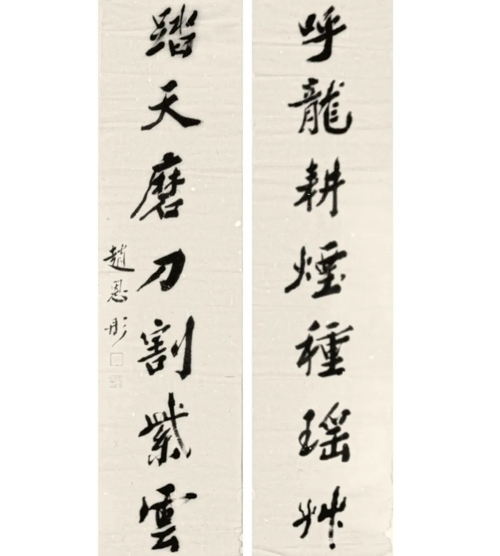 呼龍耕煙種瑶艸
踏天磨刀割紫雲
趙恩彤